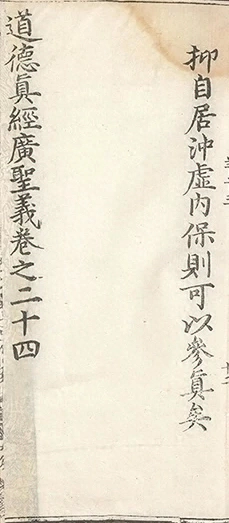 抑自居沖虛內保則可以參真矣
道德眞經廣聖義卷之二十四